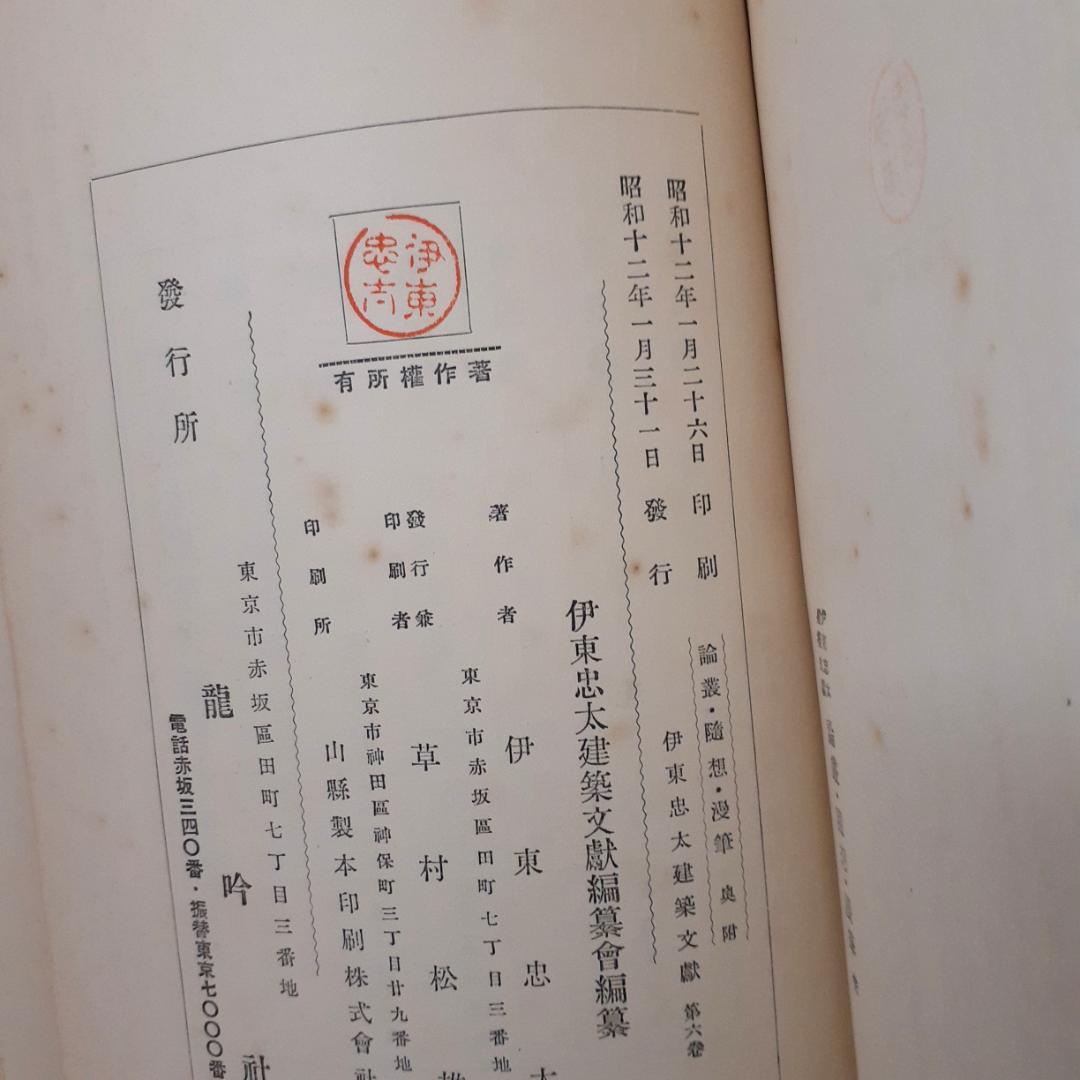 昭和十二年一月二十六日印刷
昭和十二年一月三十一日發行
論叢・隨想・漫筆 奥附
伊東忠太建築文獻 第六卷
伊東忠太建築文獻編纂會編纂
著作者 伊東忠太
東京市赤坂區田町七丁目三番地
發行兼
印刷者 草村松
東京市神田區神保町三丁目廿九番地
印刷所 山縣製本印刷株式會社
伊東忠太
著作權所有
東京市赤坂區田町七丁目三番地
發行所 龍吟社
電話赤坂三四〇番・振替東京七〇〇〇番